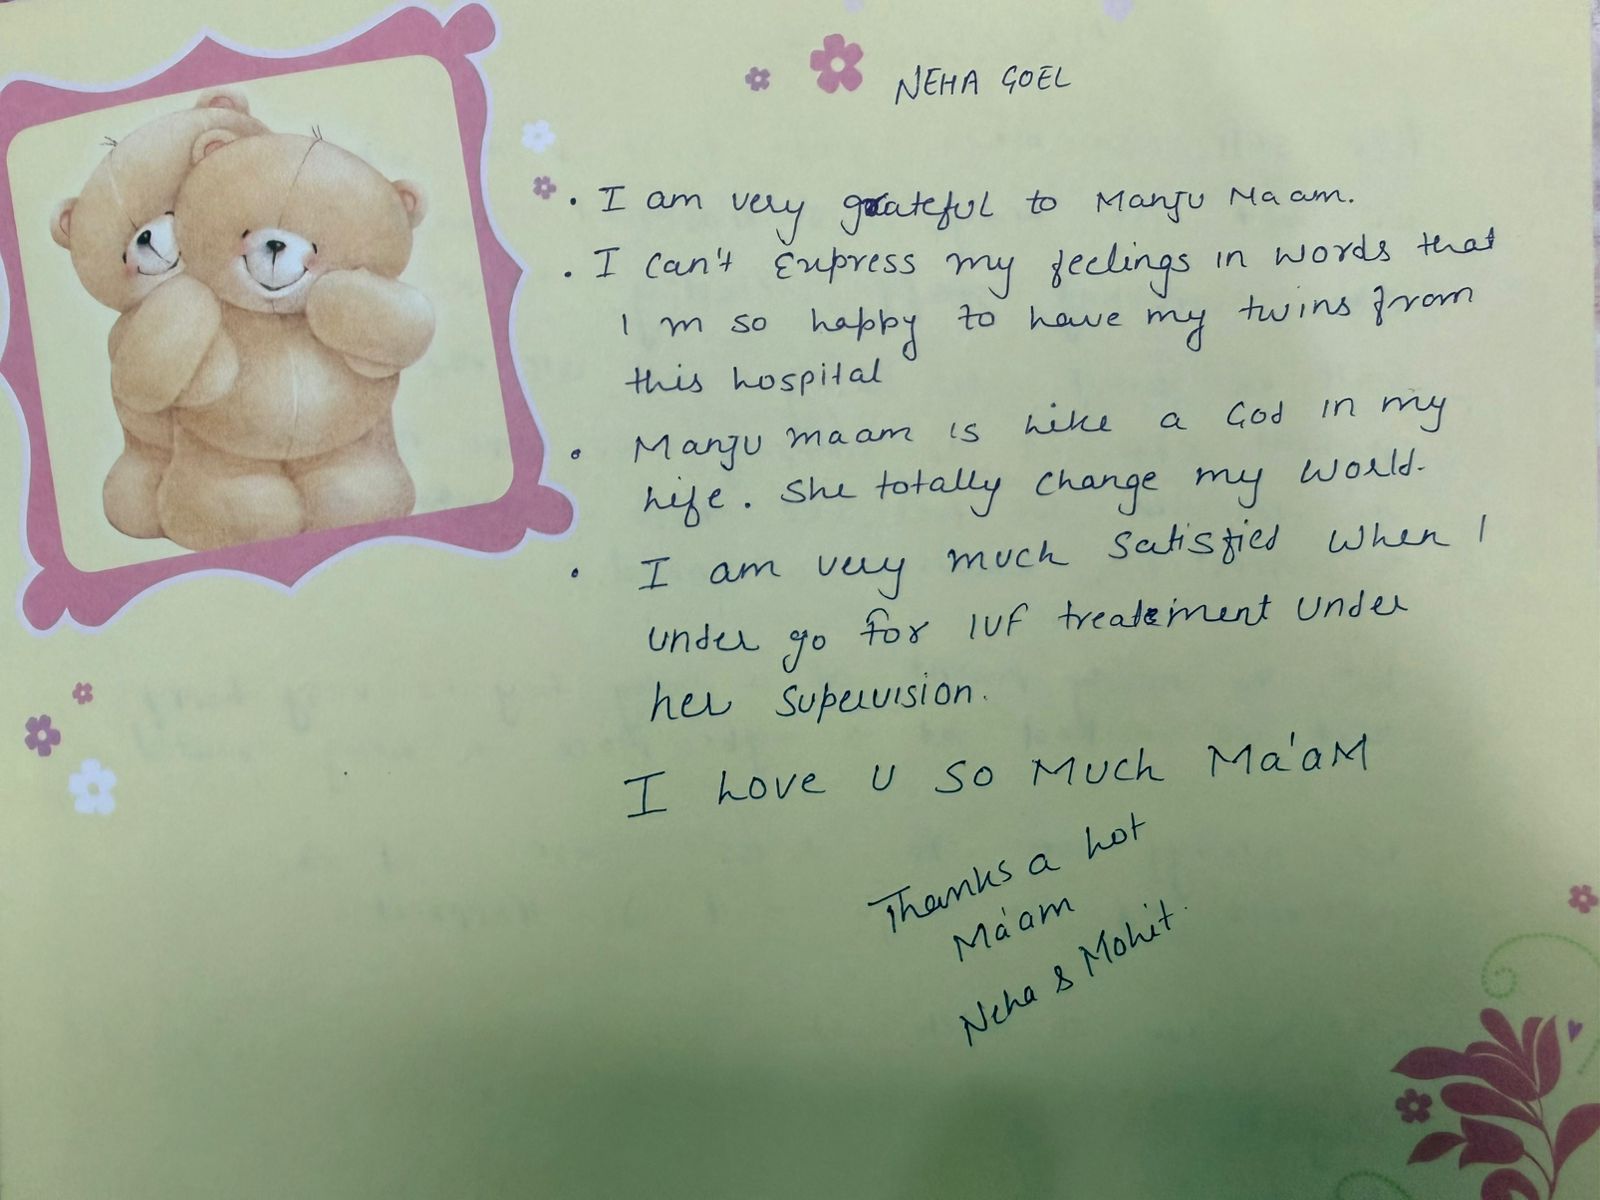 NEHA GOEL
• I am very grateful to Manju Maam.
• I can't Express my feelings in words that
I m so happy to have my twins from
this hospital
• Manju maam is Like a God in my
Life. She totally change my world.
• I am very much Satisfied when I
under go for IVF treatement under
her Supervision.
I LOVE U SO MUCH MA'AM
Thanks a Lot
Ma'am
Neha & Mohit.